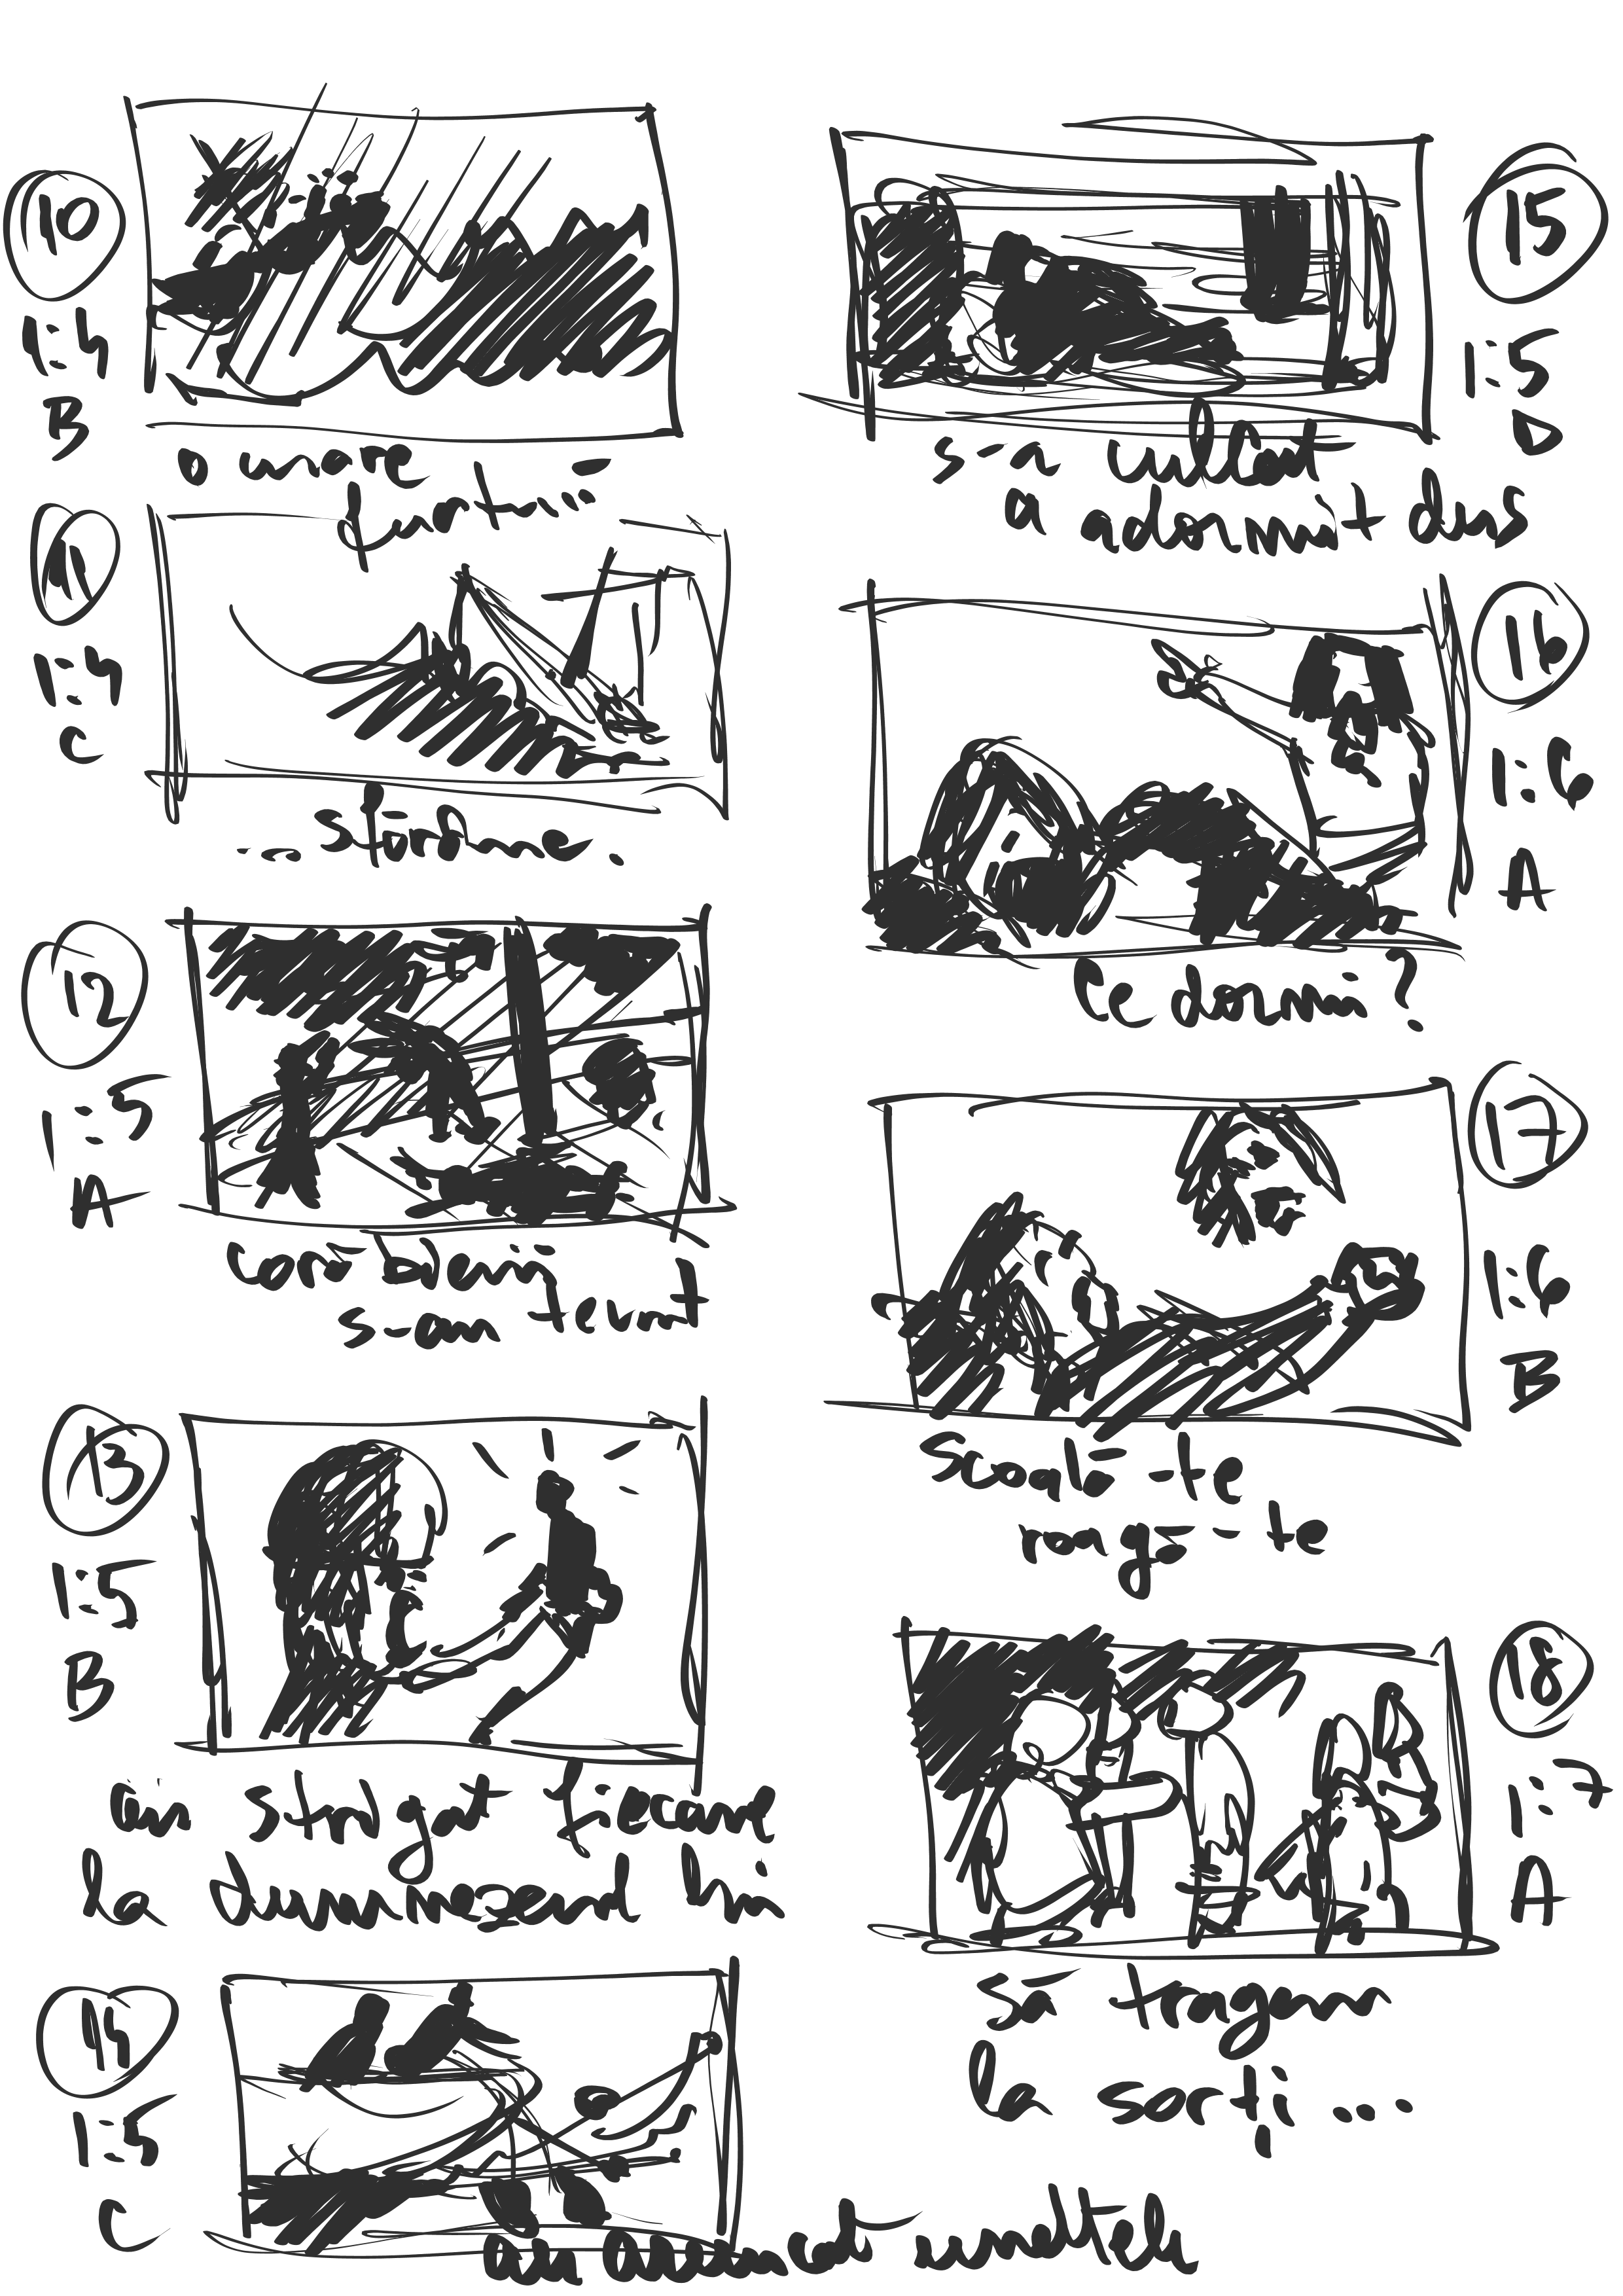 10
1:4
B
o mare
furtună
11
1:4
C
... stârnise.
12
1:5
A
corăbierii
s-au temut
13
1:5
B
au strigat fiecare
la dumnezeul lui
14
1:5
C
au aruncat uneltele
15
1:5
D
s-a culcat
a adormit dus
16
1:6
A
Ce dormi?
17
1:6
B
Scoală-te
roagă-te
18
1:7
A
Să tragem
la sorți...